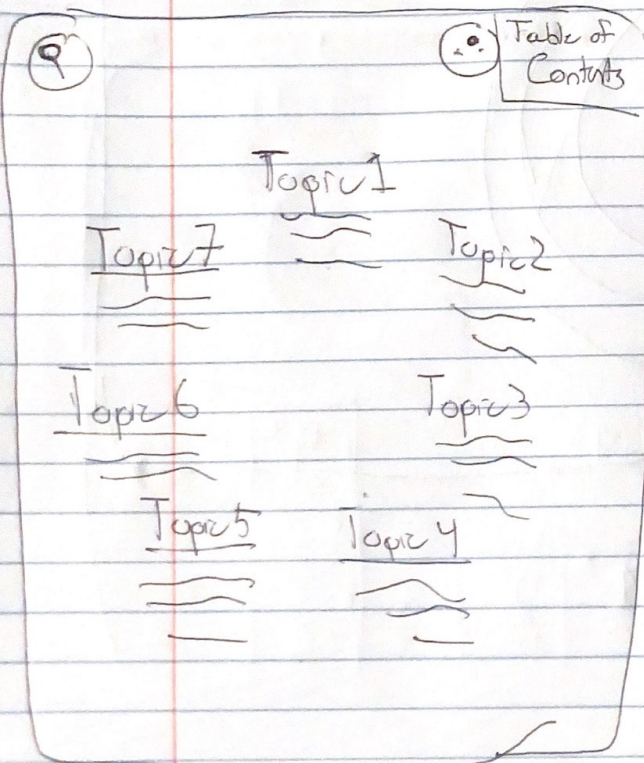 Table of
Contents
Topic 1
Topic 7
Topic 2
Topic 6
Topic 3
Topic 5
Topic 4